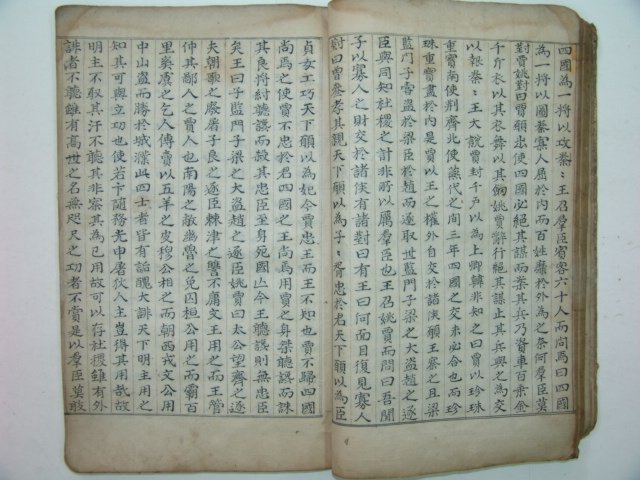 四國為一將以攻秦〻王召羣臣賓客六十人而問焉曰四國
為一將以圖秦寡人屈於內而百姓靡於外為之奈何羣臣莫
對賈姚對曰賈願出使四國必絕其謀而案其兵乃資車百乘金
千斤衣以其衣舞以其劍姚賈辭行絕其謀止其兵與之為交
以報秦〻王大說賈封千戶以為上卿韓非知之曰賈以珍珠
重寶南使荊齊北使燕代之間三年四國之交未必合也而珍
珠重寶盡於內是賈以王之權外自交於諸侯願王察之且梁
監門子嘗盜於梁臣於趙而逐取世監門子梁之大盜趙之逐
臣與同知社稷之計非所以厲羣臣也王召姚賈而問曰吾聞
子以寡人之財交於諸侯有諸對曰有王曰何面目復見寡人
對曰曾參孝其親天下願以為子〻胥忠於君天下願以為臣
貞女工巧天下願以為妃今賈忠王而王不知也賈不歸四國
尚焉之使賈不忠於君四國之王尚焉用賈之身桀聽讒而誅
其良將紂聽讒而殺其忠臣至身死國亡今王聽讒則無忠臣
矣王曰子監門子梁之大盜趙之逐臣姚賈曰太公望齊之逐
夫朝歌之廢屠子良之逐臣棘津之讐不庸文王用之而王管
仲其鄙人之賈人也南陽之敝幽魯之免囚桓公用之而霸百
里奚虞之乞人傳賣以五羊之皮穆公相之而朝西戎文公用
中山盜而勝於城濮此四士者皆有詬醜大誹天下明主用之
知其可與立功也使若卞隨務光申屠狄人主豈得其用哉故
明主不取其汙不聽其非察其為己用故可以存社稷雖有外
誹者不聽雖有高世之名無咫尺之功者不賞是以羣臣莫敢